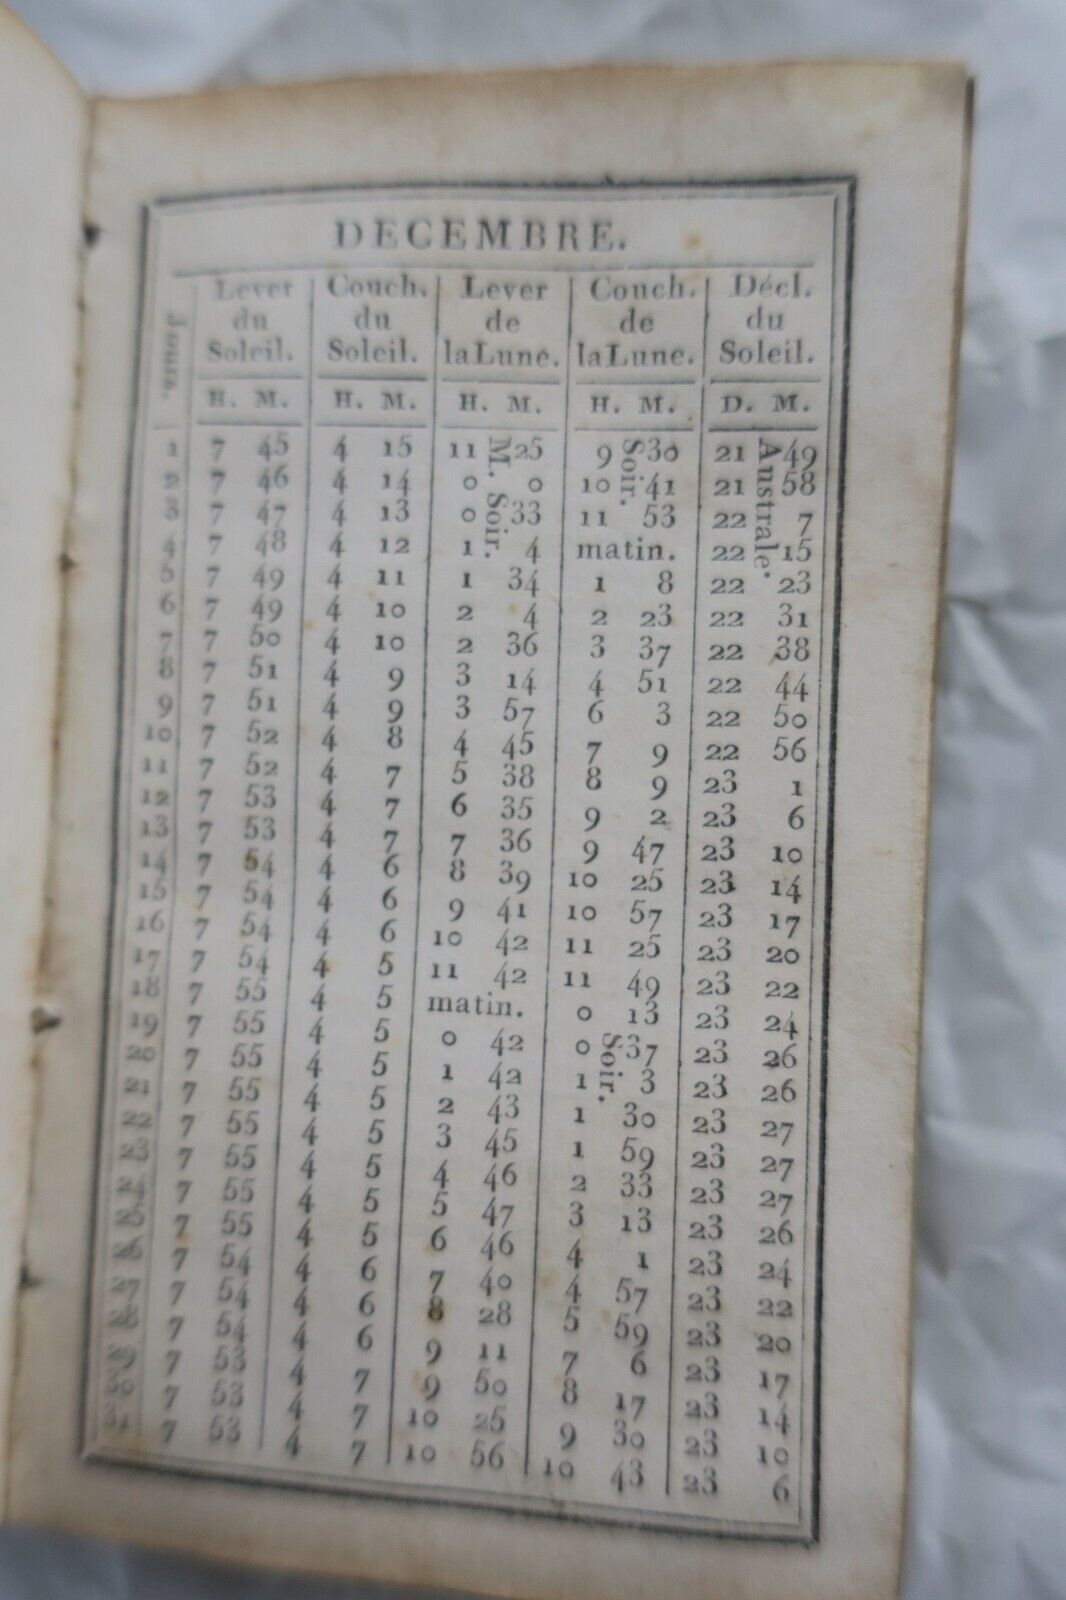 DECEMBRE.
Jours. Lever du Soleil. Couch. du Soleil. Lever de laLune. Couch. de laLune. Décl. du Soleil.
H. M. H. M. H. M. H. M. D. M.
M. Soir. Soir. Australe.
1 7 45 4 15 11 25 9 30 21 49
2 7 46 4 14 0 0 10 41 21 58
3 7 47 4 13 0 33 11 53 22 7
4 7 48 4 12 1 4 matin. 22 15
5 7 49 4 11 1 34 1 8 22 23
6 7 49 4 10 2 4 2 23 22 31
7 7 50 4 10 2 36 3 37 22 38
8 7 51 4 9 3 14 4 51 22 44
9 7 51 4 9 3 57 6 3 22 50
10 7 52 4 8 4 45 7 9 22 56
11 7 52 4 7 5 38 8 9 23 1
12 7 53 4 7 6 35 9 2 23 6
13 7 53 4 7 7 36 9 47 23 10
14 7 54 4 6 8 39 10 25 23 14
15 7 54 4 6 9 41 10 57 23 17
16 7 54 4 6 10 42 11 25 23 20
17 7 54 4 5 11 42 11 49 23 22
18 7 55 4 5 matin. 0 13 23 24
19 7 55 4 5 0 42 0 37 23 26
20 7 55 4 5 1 42 1 3 23 26
21 7 55 4 5 2 43 1 30 23 27
22 7 55 4 5 3 45 1 59 23 27
23 7 55 4 5 4 46 2 33 23 27
24 7 55 4 5 5 47 3 13 23 26
25 7 55 4 5 6 46 4 1 23 24
26 7 54 4 6 7 40 4 57 23 22
27 7 54 4 6 8 28 5 59 23 20
28 7 54 4 6 9 11 7 6 23 17
29 7 53 4 7 9 50 8 17 23 14
30 7 53 4 7 10 25 9 30 23 10
31 7 53 4 7 10 56 10 43 23 6
Soir.